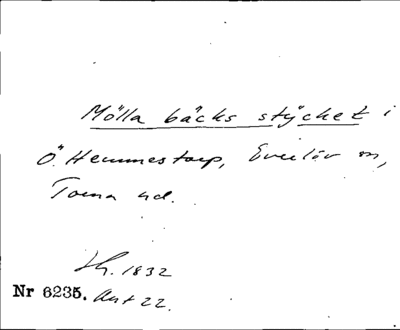 Mölla bäcks stycket i
Ö. Hemmestorp, Everlöv sn,
Torna hd.
Lh. 1832
Nr 6235. Akt 22.